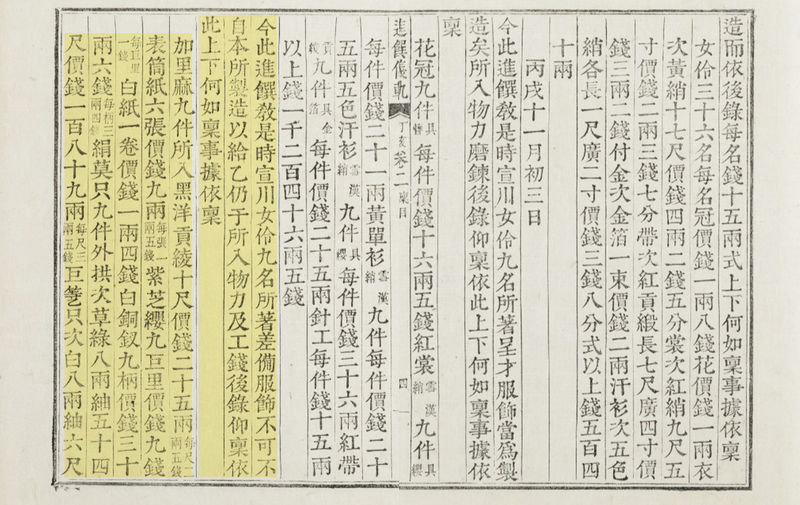 造而依後錄每名錢十五兩式上下何如稟事據依稟
女伶三十六名每名冠價錢一兩八錢花價錢一兩衣
次黃綃十七尺價錢四兩二錢五分裳次紅綃九尺五
寸價錢二兩三錢七分帶次紅貢緞長七尺廣四寸價
錢三兩二錢付金次金箔一束價錢二兩汗衫次五色
綃各長一尺廣二寸價錢三錢八分式以上錢五百四
十兩
丙戌十一月初三日
今此進饌敎是時宣川女伶九名所著呈才服飾當爲製
造矣所入物力磨鍊後錄仰稟依此上下何如稟事據依
稟
花冠九件具 每件價錢十六兩五錢紅裳雲漢綃九件具纓
進饌儀軌 丁亥 卷二 稟目 四
每件價錢二十一兩黃單衫雲漢綃九件每件價錢二十
五兩五色汗衫漢綃九件具纓每件價錢三十六兩紅帶
貢綾九件具金箔每件價錢二十五兩針工每件錢十五兩
以上錢一千二百四十六兩五錢
今此進饌敎是時宣川女伶九名所著差備服飾不可不
自本所製造以給乙仍于所入物力及工錢後錄仰稟依
此上下何如稟事據依稟
加里麻九件所入黑洋貢綾十尺價錢二十五兩每尺二兩五錢
表筒紙六張價錢九兩每張一兩五錢紫芝纓九巨里價錢九錢
每巨里一錢白紙一卷價錢一兩四錢白銅釵九柄價錢三十
兩六錢每柄三兩四錢絹莫只九件外拱次草綠八兩紬五十四
尺價錢一百八十九兩每尺三兩五錢巨乼只次白八兩紬六尺